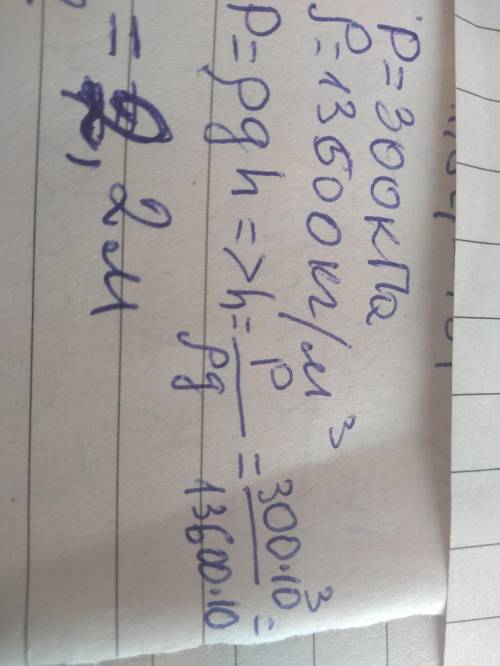 P=300кПа
ρ=13600кг/м³
P=ρgh=>h=p/ρg=300·10³/13600·10=
=2,2м